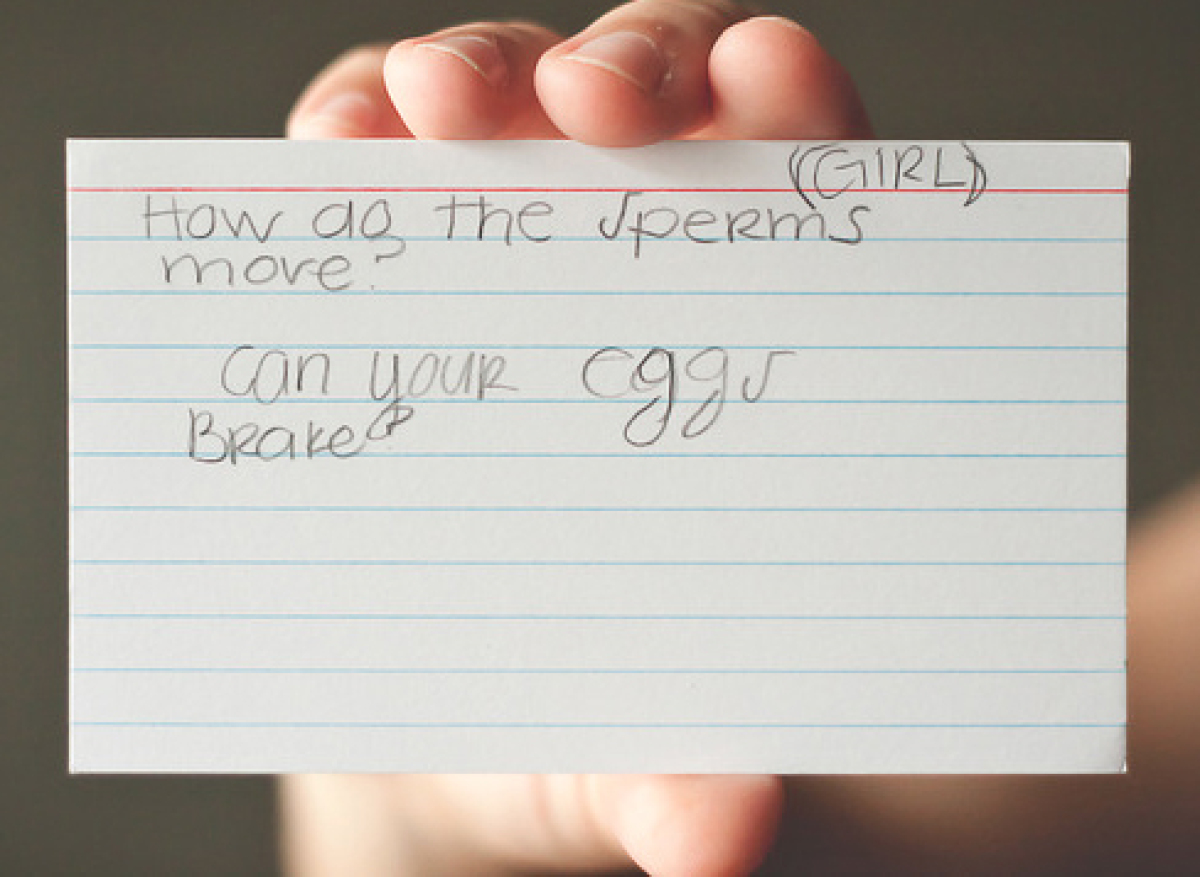 (GIRL)
How do the sperms
move?
Can your eggs
Brake?